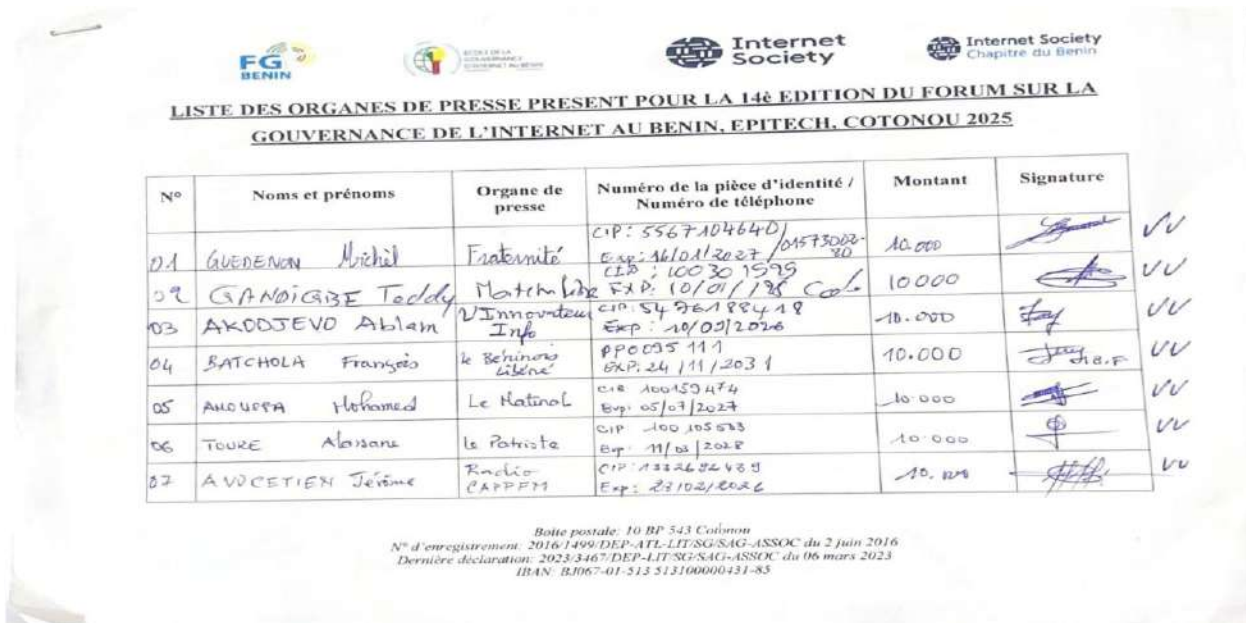 FG
BENIN
ECOLE DE LA
GOUVERNANCE
D'INTERNET AU BENIN
Internet
Society
Internet Society
Chapitre du Benin
LISTE DES ORGANES DE PRESSE PRESENT POUR LA 14è EDITION DU FORUM SUR LA
GOUVERNANCE DE L'INTERNET AU BENIN, EPITECH, COTONOU 2025
N° Noms et prénoms Organe de presse Numéro de la pièce d'identité / Numéro de téléphone Montant Signature
01 GUEDENON Michël Fraternité CIP: 5567104640 Exp: 16/01/2027 10.000
02 GANDIGBE Teddy Matchn libre 10000
03 AKODJEVO Ablam L'Innovateur Info CIP: 5476188418 Exp: 10/09/2026 10.000
04 BATCHOLA François le Béninois Libéré PP0095111 EXP: 24/11/2031 10.000
05 Mohamed Le Matinal CIP 100159474 Exp: 05/07/2027 10.000
06 TOURE Alassane le Patriote CIP 100105533 Exp: 11/03/2028 10.000
07 AVOCETIEN Jérôme Radio CAPPFM CIP: 1332692439 Exp: 23/02/2026 10.000
Boite postale: 10 BP 543 Cotonou
N° d'enregistrement: 2016/1499/DEP-ATL-LIT/SG/SAG-ASSOC du 2 juin 2016
Dernière déclaration: 2023/3467/DEP-LIT/SG/SAG-ASSOC du 06 mars 2023
IBAN: BJ067-01-513 513100000431-85